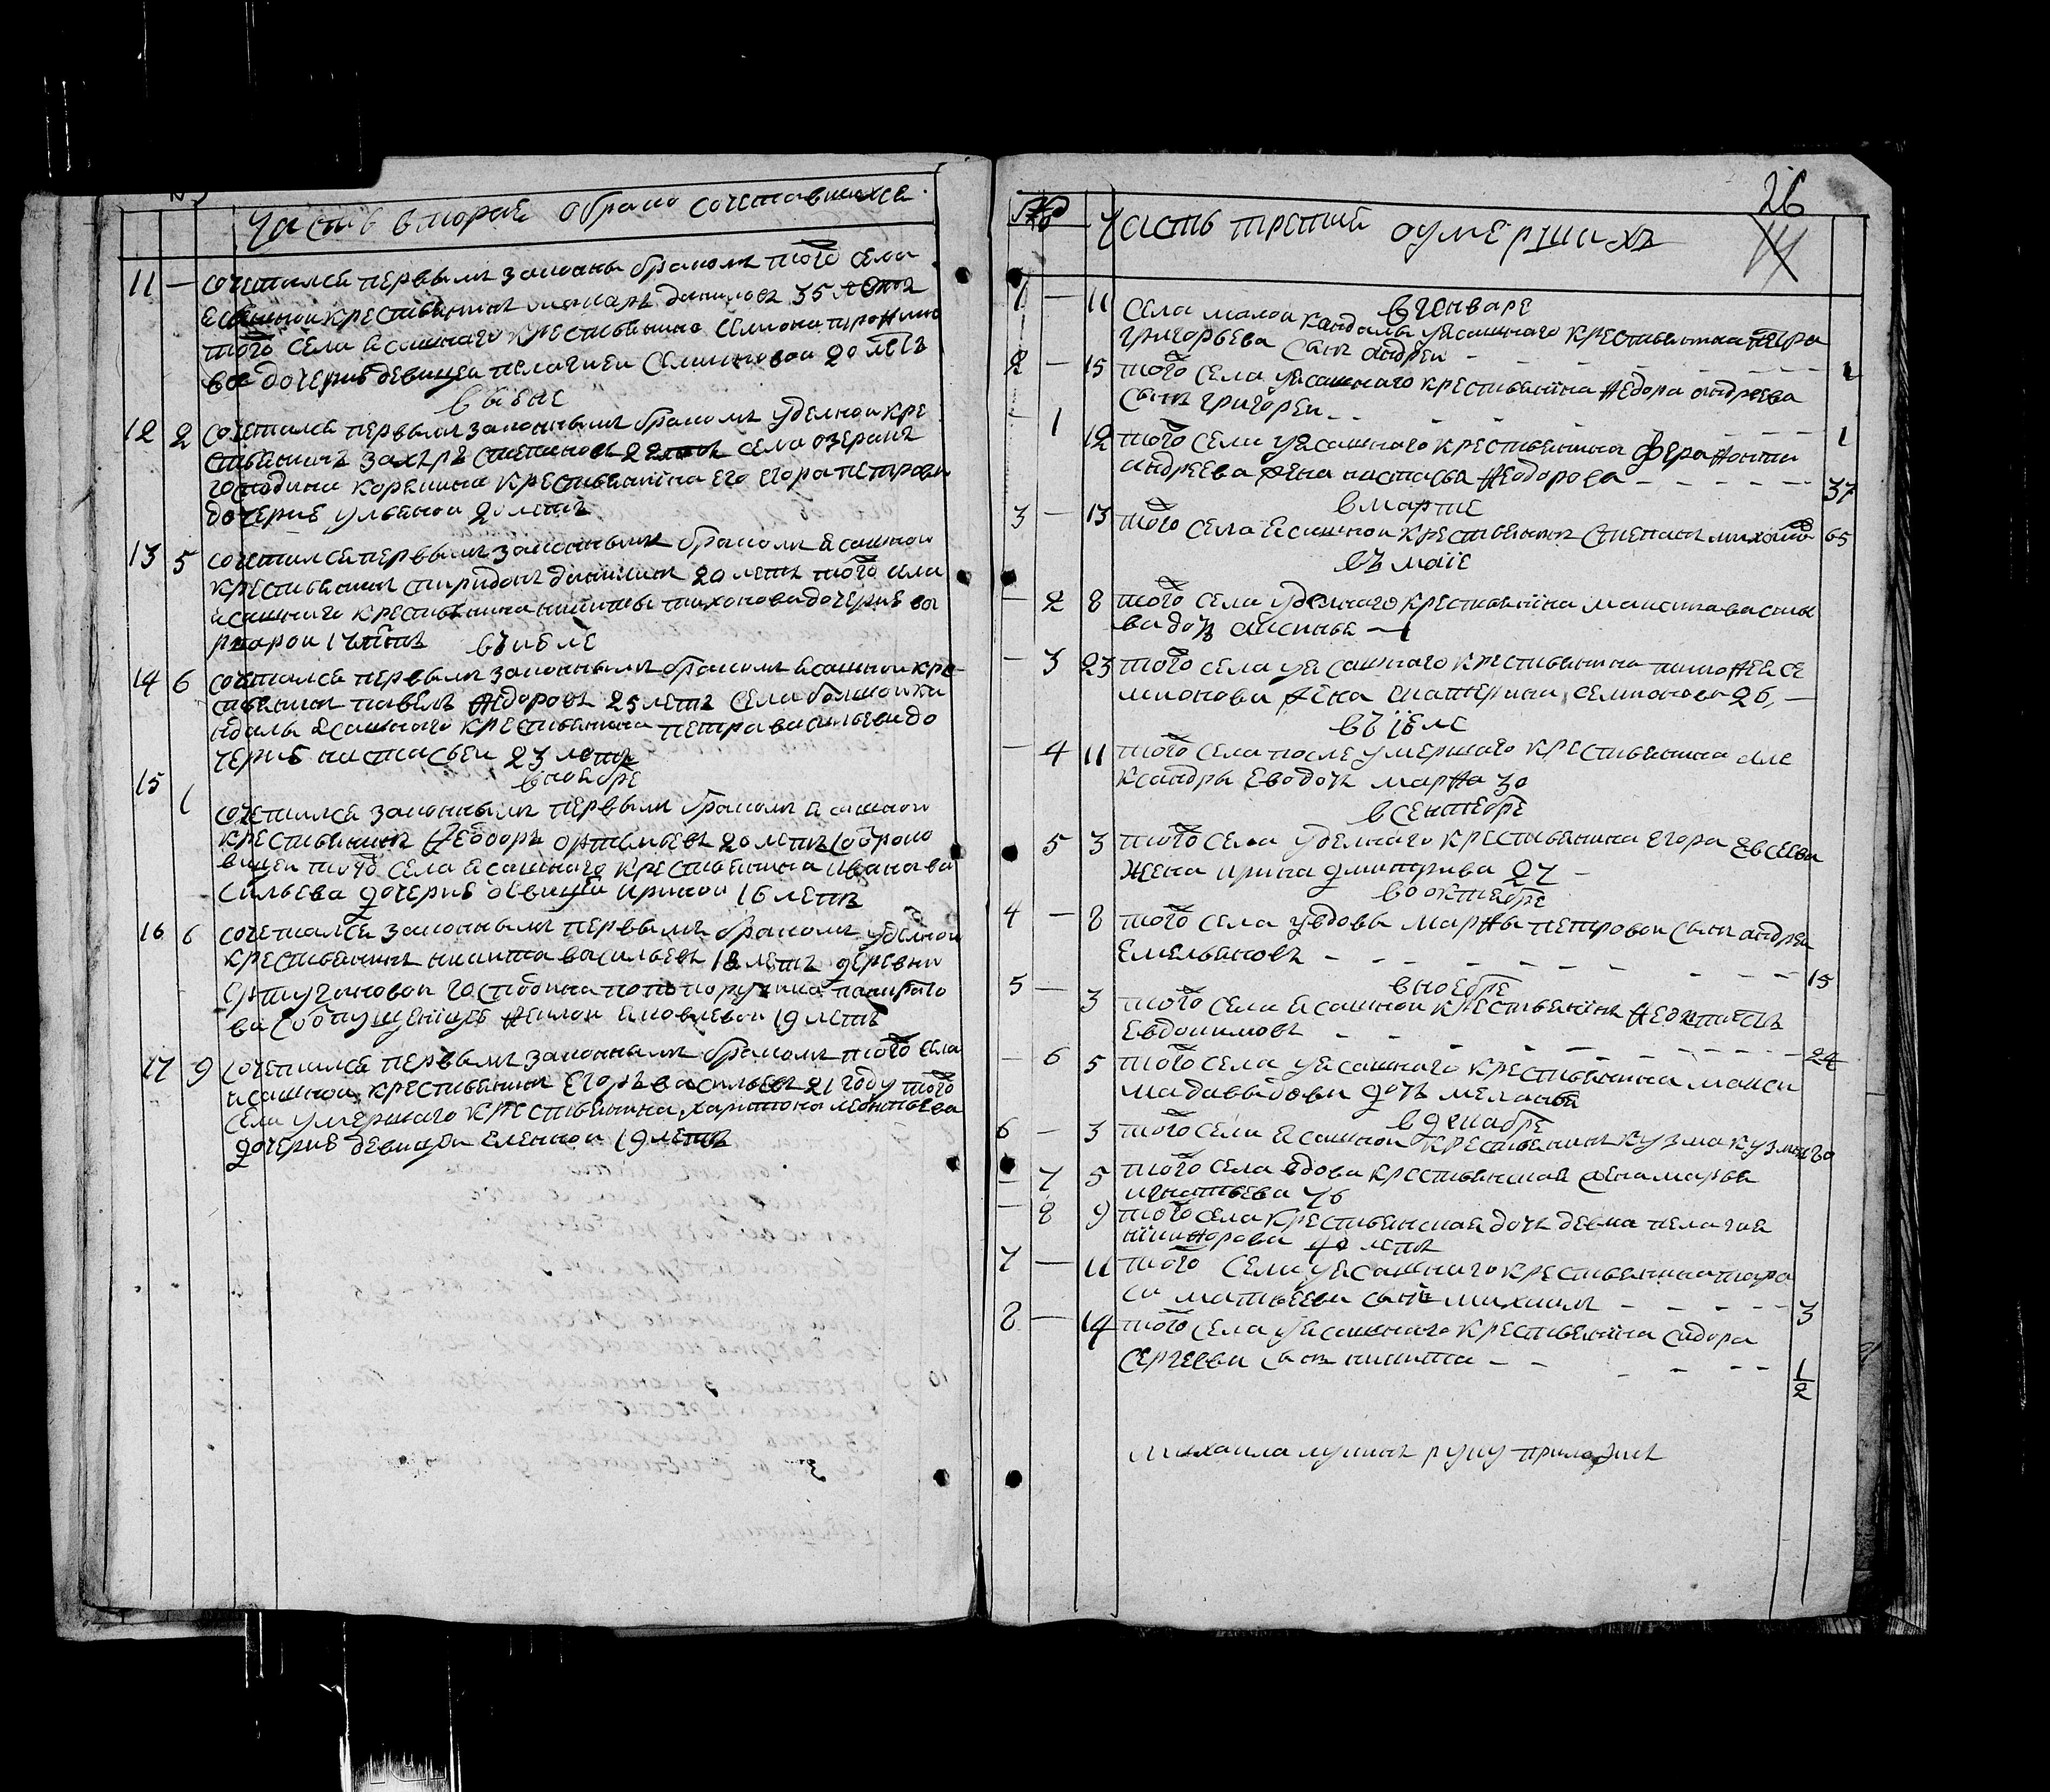 Часть вторая о брако сочетавшихся
11 — сочетался первымъ законны бракомъ того села
ясашной крестьянинъ макаръ даниловъ 35 летъ
того села ясашнаго крестьянина семиона
дочерию девицеи пелагиеи семионовои 20 летъ
12 2 сочетался первымъ законнымъ бракомъ уделнои кре
стьянинъ степановъ 22 летъ села озерокъ
господина крестьянина его егора петрова
дочерию ульяной 20 летъ
13 5 сочетался первымъ законнымъ бракомъ ясашнои
крестьянинъ спиридонъ данилинъ 20 летъ того села
ясашнаго крестьянина никиты тихонова дочерию ва
рварои 17 летъ
14 6 сочетался первымъ законнымъ бракомъ ясашнои кре
стьянинъ павелъ ѳедоровъ 25 летъ села болшои ка
ндалы ясашнаго крестьянина петра васильева до
черию настасьеи 23 летъ
в ноябре
15 1 сочетался законнымъ первымъ бракомъ ясашнои
крестьянинъ Ѳеодоръ 20 летъ
того села ясашнаго крестьянина ивана ва
сильева дочерию девицеи ириной 16 летъ
16 6 сочетался законнымъ первымъ бракомъ уделнои
крестьянинъ никита васильевъ 18 летъ деревни
господина порутчика
яковлевой 19 летъ
17 9 сочетался первымъ законнымъ бракомъ того села
ясашнои крестьянинъ егоръ васильевъ 21 году того
села умершаго крестьянина харитона леонтьева
дочерию девицеи еленнои 19 летъ
26
Часть третия о умершихъ
в генваре
1 — 11 села малои кандалы у ясашнаго крестьянина петра
григорьева сынъ андреи - 1
2 — 15 того села у ясашнаго крестьянина ѳедора андреева
сынъ григореи - 1
— 1 12 того села у ясашнаго крестьянина ферапонта
андреева жена настасья ѳеодорова - 37
в марте
3 — 13 того села ясашнои крестьянинъ степанъ 65
въ маіе
— 2 8 того села уделнаго крестьянина максима василье
ва дочь аксинья — 1
— 3 23 того села у ясашнаго крестьянина тимоѳея се
мионова жена екатерина семионова 26, —
— 4 11 того села после умершаго крестьянина але
ксандра ево дочь марѳа 30
в сентебре
— 5 3 того села уделнаго крестьянина егора евсеева
жена ирина дмитрива 27 -
во октебре
4 — 8 того села у вдовы марѳы петровои сынъ андреи
емельяновъ - 15
в ноебре
5 — 3 того села ясашнои крестьянинъ ѳеоктистъ
евдокимовъ - 24
— 6 5 того села у ясашнаго крестьянина макси
ма давыдова дочь меланья
в декабре
6 — 3 того села ясашнои крестьянинъ кузма кузминъ 80
— 7 5 того села вдова крестьянская жена марья
игнатьева 76
— 8 9 того села крестьянская дочь девка пелагия
никиѳорова 40 летъ
7 — 11 того села у ясашнаго крестьянина тара
са матвеева сынъ михаилъ - 3
8 — 14 того села у ясашнаго крестьянина сидора
сергеева сынъ никита - 1/2
михаила лукинъ руку приложилъ